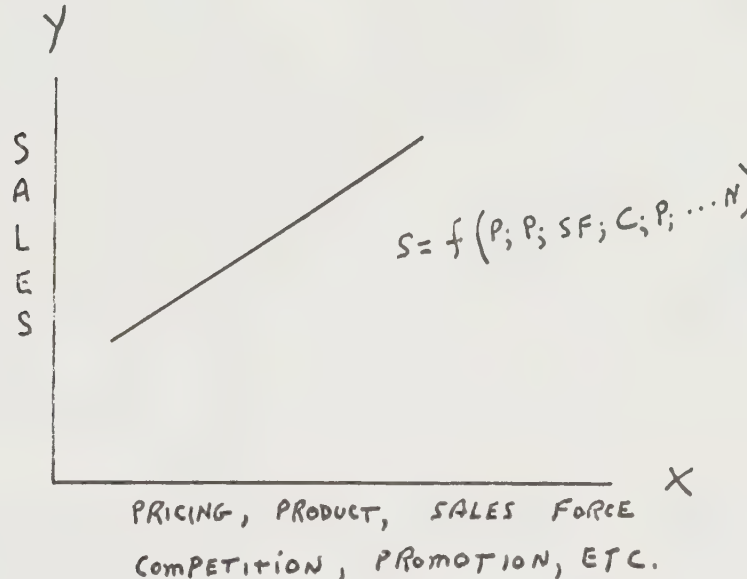 Y
SALES
S = f (P; P; SF; C; P; ... N)
X
PRICING, PRODUCT, SALES FORCE
COMPETITION, PROMOTION, ETC.